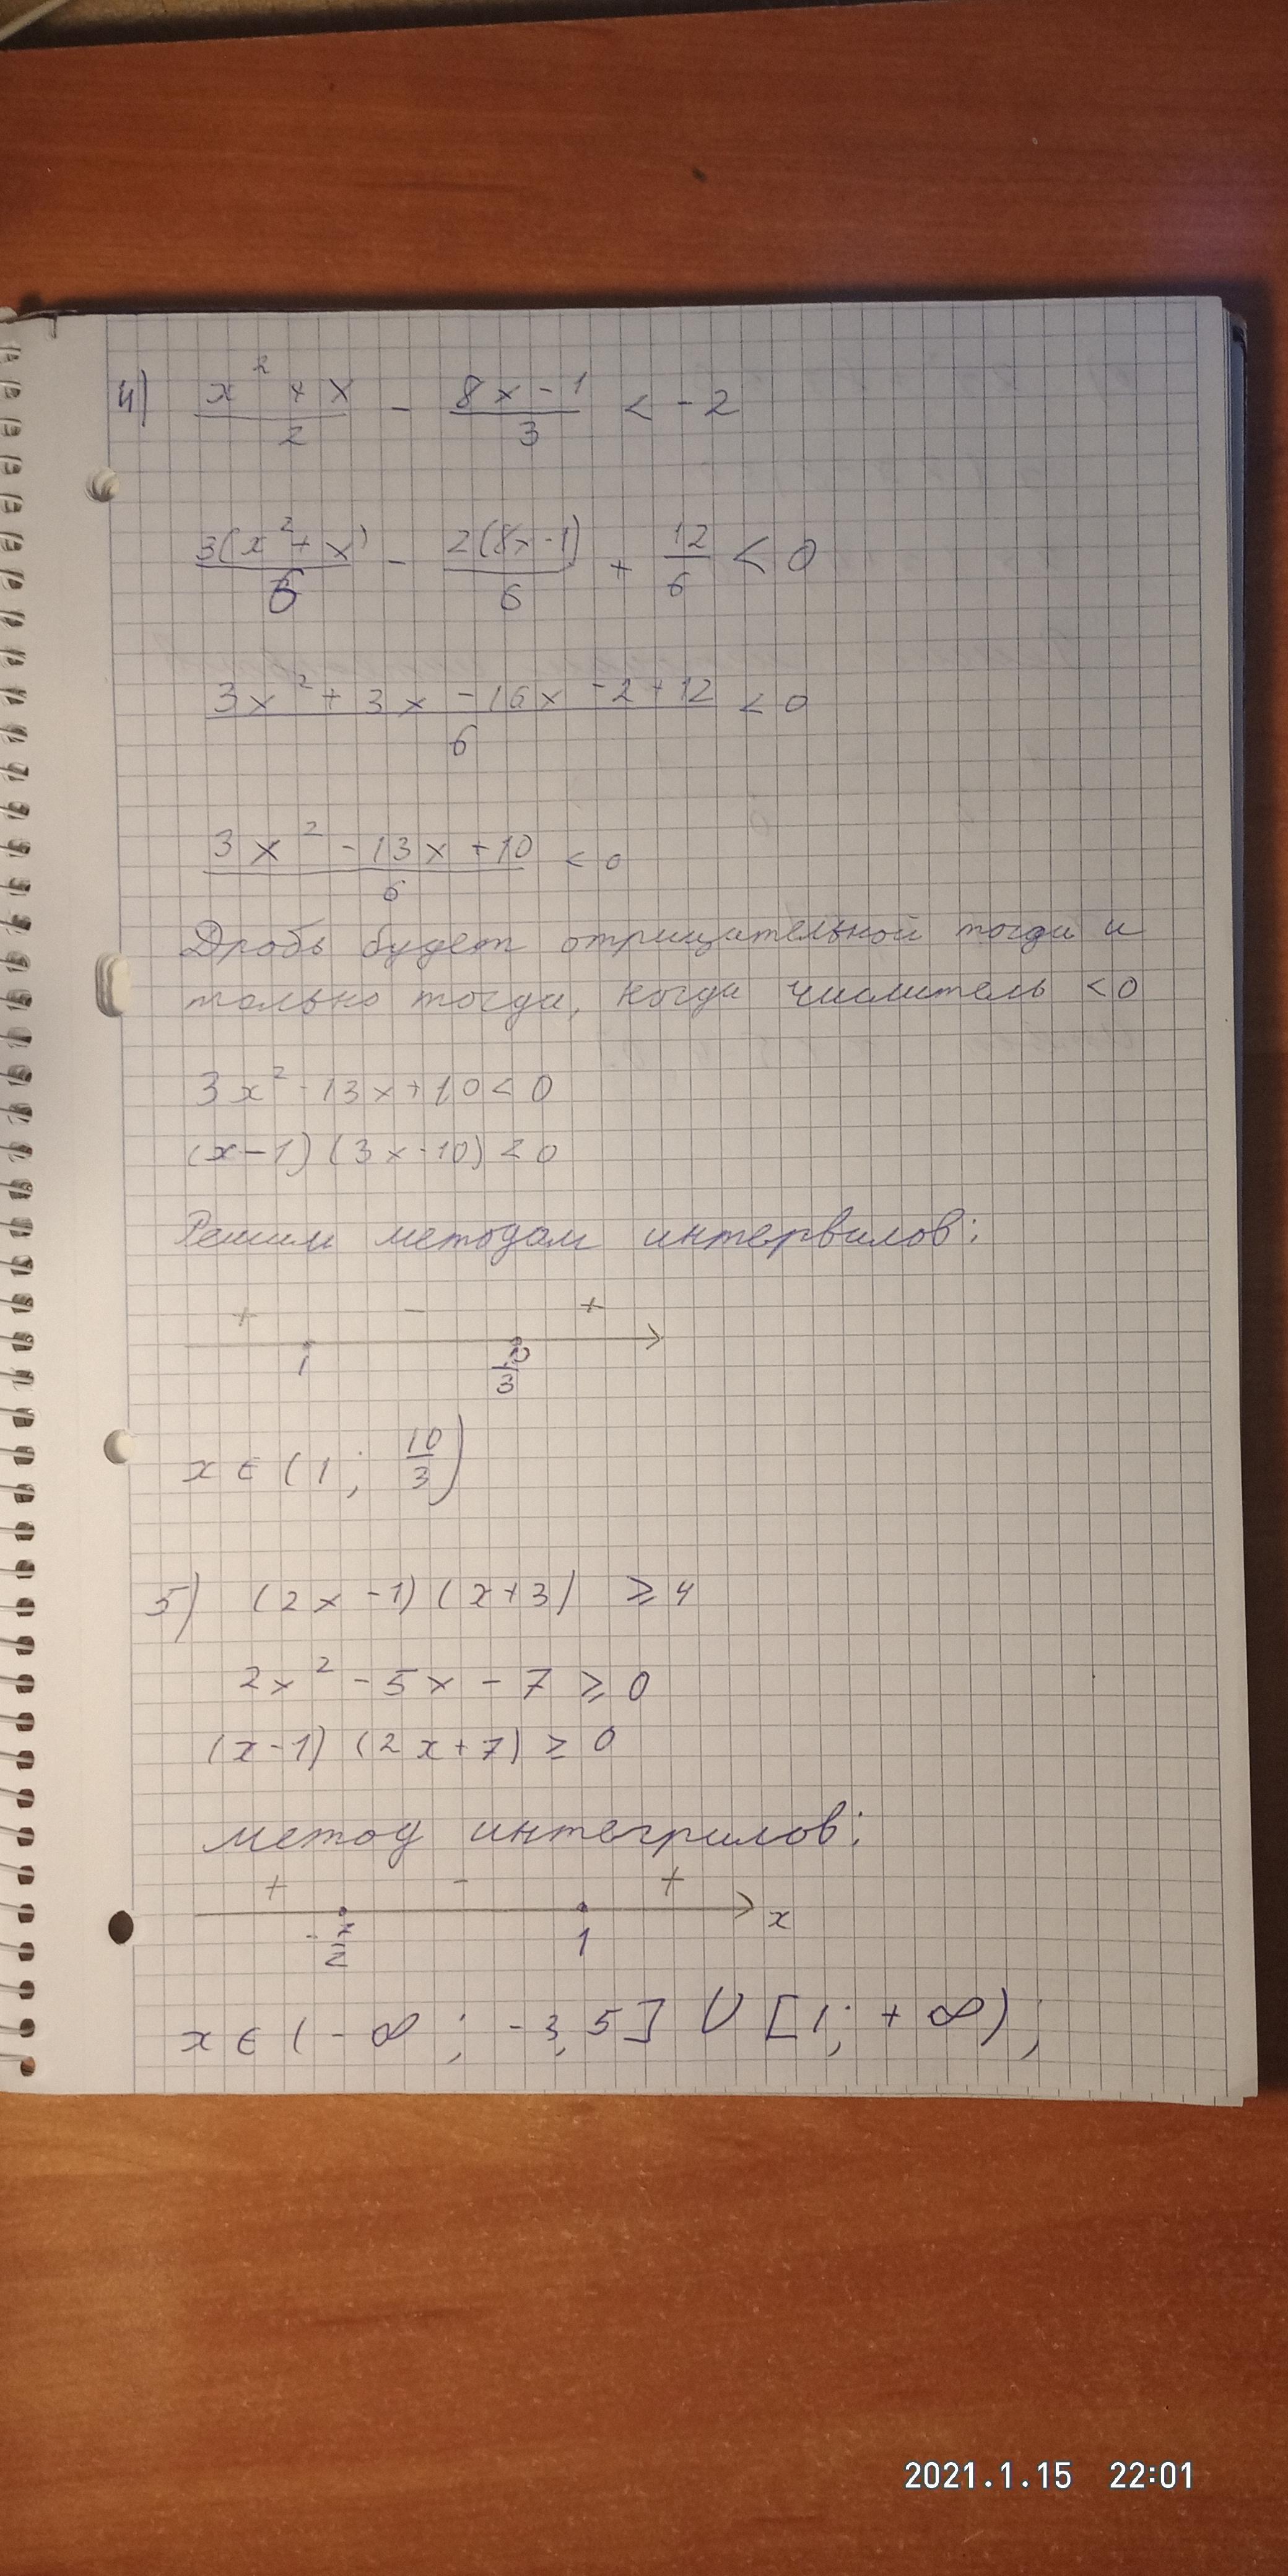 4) (x² + x)/2 - (8x - 1)/3 < -2
3(x² + x)/6 - 2(8x - 1)/6 + 12/6 < 0
(3x² + 3x - 16x - 2 + 12)/6 < 0
(3x² - 13x + 10)/6 < 0
Дробь будет отрицательной тогда и
только тогда, когда числитель < 0
3x² - 13x + 10 < 0
(x - 1)(3x - 10) < 0
Решим методом интервалов:
+ - +
1 10/3
x ∈ (1; 10/3)
5) (2x - 1)(x + 3) ≥ 4
2x² - 5x - 7 ≥ 0
(x - 1)(2x + 7) ≥ 0
метод интегралов:
+ - +
-7/2 1 x
x ∈ (-∞; -3,5] ∪ [1; +∞);
2021.1.15 22:01